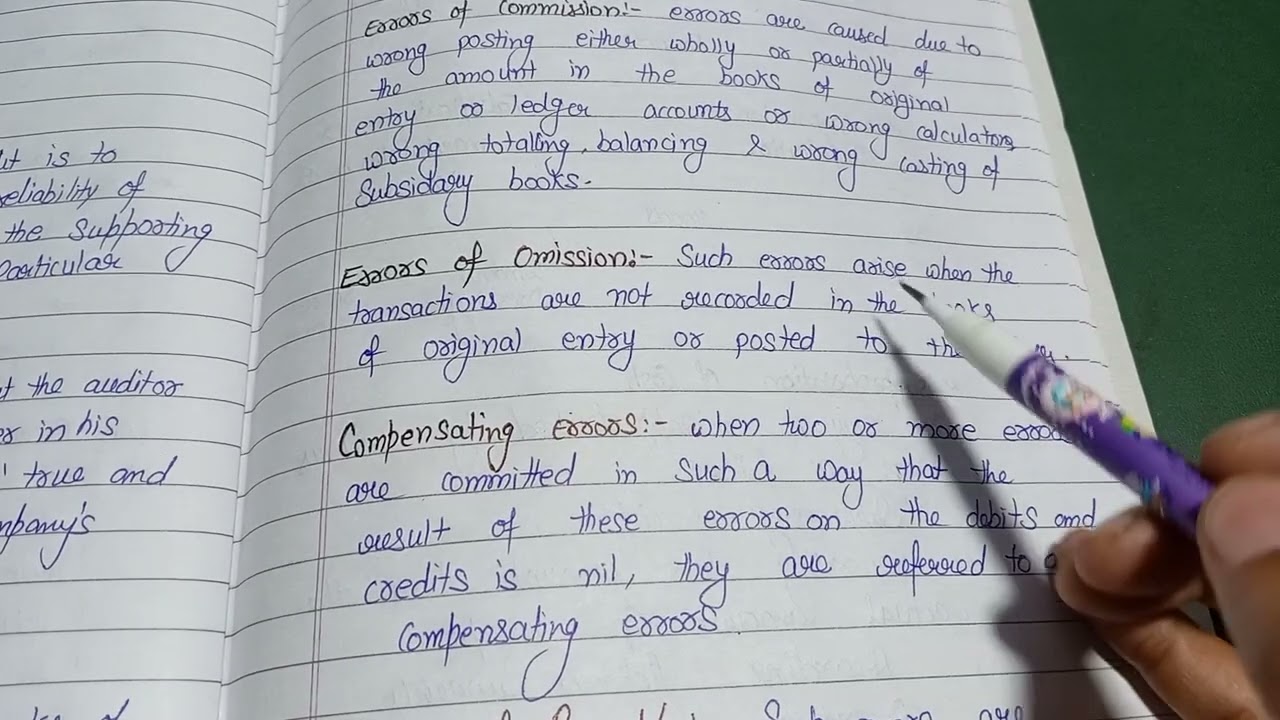 it is to
reliability of
the supporting
Particular
t the auditor
er in his
true and
mpany's
Errors of Commission:- errors are caused due to
wrong posting either wholly or partially of
the amount in the books of original
entry or ledger accounts or wrong calculations
wrong totaling, balancing & wrong casting of
Subsidary books.
Errors of Omission:- Such errors arise when the
transactions are not recorded in the
of original entry or posted to the
Compensating errors:- when two or more
are committed in Such a way that the
result of these errors on the debits and
credits is nil, they are referred to
Compensating errors